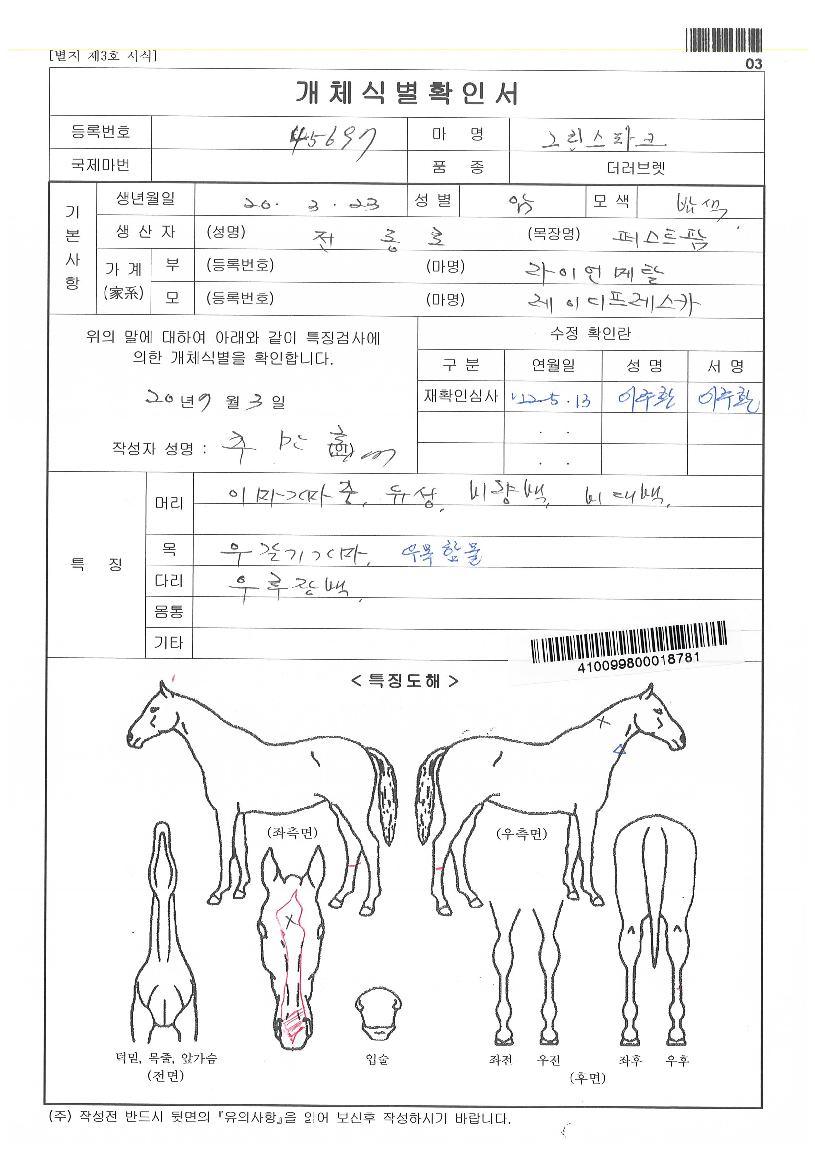 [별지 제3호 서식]
03
개체식별확인서
등록번호 45697 마 명 그린스파크
국제마번 품 종 더러브렛
기본사항
생년월일 20. 3. 23 성별 암 모색 밤색
생 산 자 (성명) 전 홍 (목장명) 퍼스트팜
가계 (家系) 부 (등록번호) (마명) 라이언메탈
모 (등록번호) (마명) 레이디프레스카
위의 말에 대하여 아래와 같이 특징검사에
의한 개체식별을 확인합니다.
20년 9월 3일
작성자 성명 : (인)
수정 확인란
구 분 연월일 성 명 서 명
재확인심사 '22. 5. 13 이주환 이주환
. .
. .
특 징
머리 이마가마 중, 유성, 비량백, 비대백,
목 우갈기가마, 우목함몰
다리 우후장백
몸통
기타
410099800018781
< 특징도해 >
(좌측면) (우측면)
턱밑, 목줄, 앞가슴
(전면)
입술
좌전 우전 좌후 우후
(후면)
(주) 작성전 반드시 뒷면의 『유의사항』을 읽어 보신후 작성하시기 바랍니다.